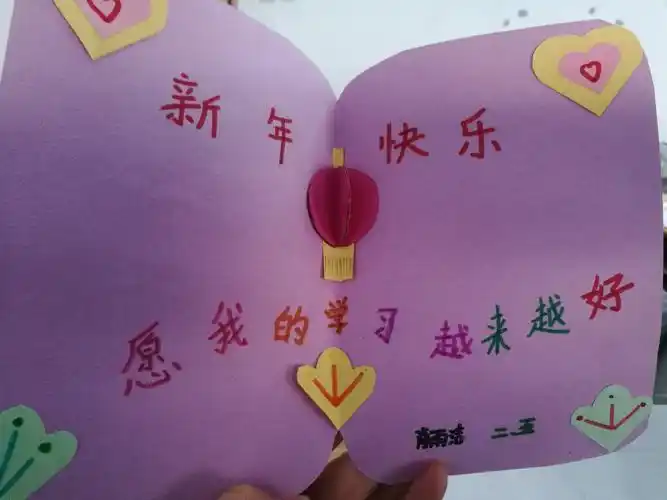 新年快乐
愿我的学习越来越好
雨洁 二.五